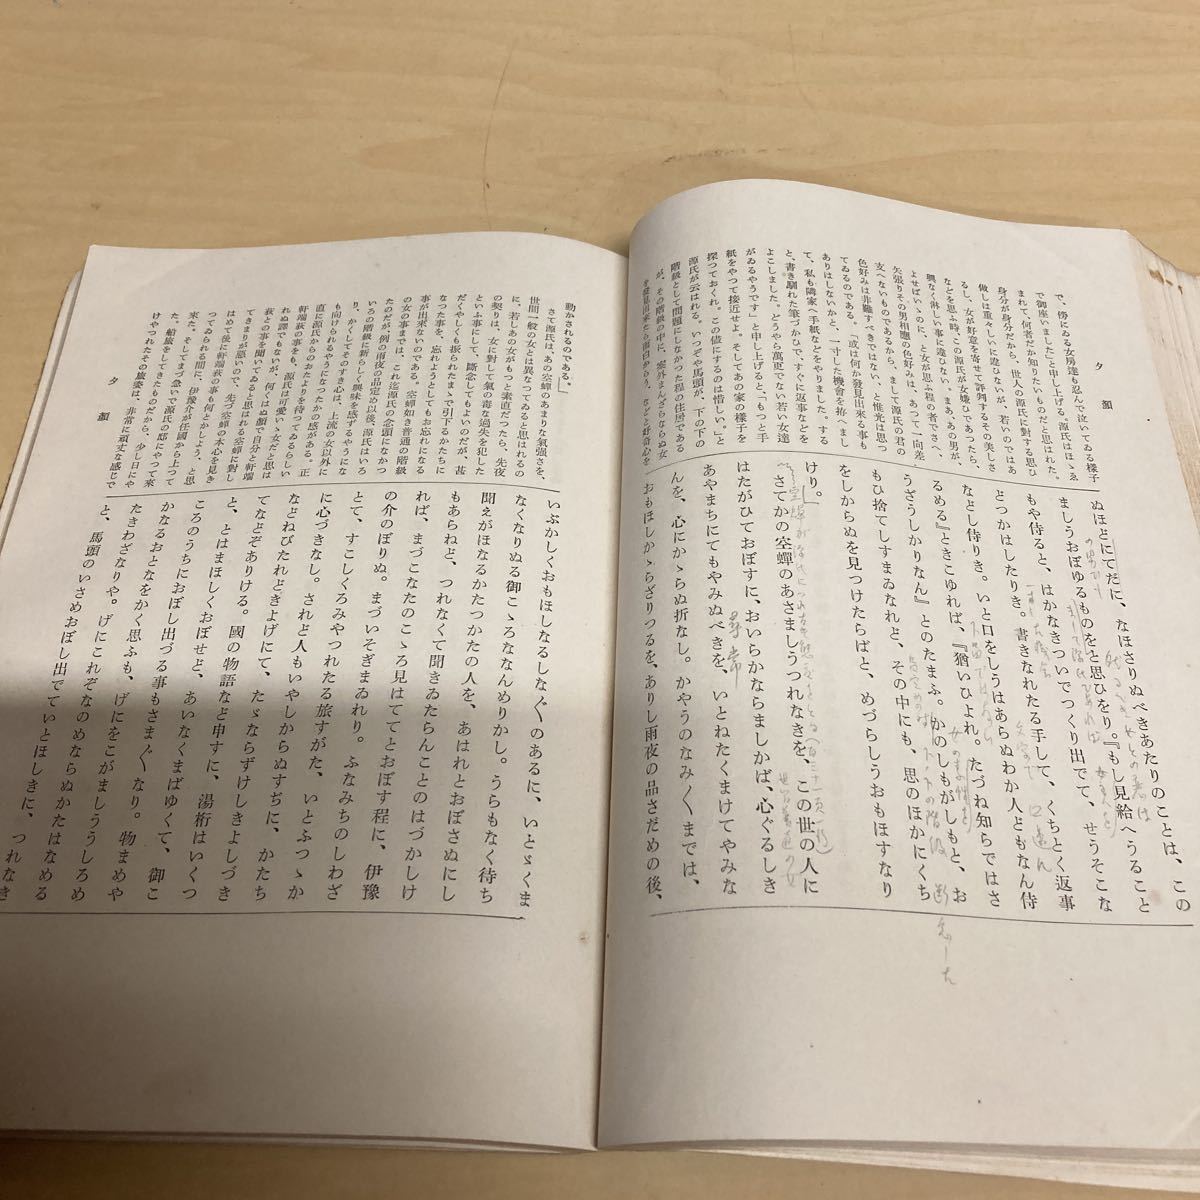 夕顔
で、傍にゐる女房達も忍んで泣いてゐる樣子
で御座いました」と申し上げる。源氏はほゝゑ
まれて、何者だか知りたいものだと思はれた。
身分が身分だから、世人の源氏に對する思ひ
做しは重々しいに違ひないが、若いのではあ
るし、女が好意を寄せて評判するその美しさ
などを思ふ時、この源氏が女嫌ひであつたら、
興なく淋しい事に違ひない。まあ、あの男が、
よせばいゝのに、と女が思ふ程の者でさへ、
矢張りその男相應の色好みは、あつて一向差
支へないものであるから、まして源氏の君の
色好みは非難すべきではない、と惟光は思つ
てゐるのである。「或は何か發見出來る事も
ありはしないかと、一寸した機會を拵へまし
て、私も隣家へ手紙などをやりました。する
と、書き馴れた筆づかひで、すぐ返事などを
よこしました。どうやら萬更でない若い女達
がゐるやうです」と申し上げると、「もつと手
紙をやつて接近せよ。そしてあの家の樣子を
探つておくれ。この儘にするのは惜しい。」と
源氏が云はれる。いつぞや馬頭が、下の下の
階級として問題にしなかつた程の住居である
が、その階級の中に、案外まんざらならぬ女
ぬほどにてだに、なほさりぬべきあたりのことは、この
ましうおぼゆるものをと思ひをり。『もし見給へうること
もや侍ると、はかなきついでつくり出でて、せうそこな
どつかはしたりき。書きなれたる手して、くちとく返事
なとし侍りき。いと口をしうはあらぬわか人どもなん侍
るめる』ときこゆれば、『猶いひよれ。たづね知らではさ
うざうしかりなん』とのたまふ。かのしもがしもと、お
もひ捨てしすまゐなれど、その中にも、思のほかにくち
をしからぬを見つけたらばと、めづらしうおもほすなり
けり。
さてかの空蟬のあさましうつれなきを、この世の人に
はたがひておぼすに、おいらかならましかば、心ぐるしき
あやまちにてもやみぬべきを、いとねたくまけてやみな
んを、心にかゝらぬ折なし。かやうのなみ〳〵までは、
おもほしかゝらざりつるを、ありし雨夜の品さだめの後、
夕顔
動かされるのである。」
さて源氏は、あの空蟬のあまりな氣强さを、
世間一般の女とは異なつてゐると思はれるの
に、若しあの女がもつと素直だつたら、先夜
の契りは、女に對して氣の毒な過失を犯した
といふ事にして、斷念してもよいのだが、甚
だくやしくも振られたまゝで引下るかたちに
なつた事を、忘れようとしてもお忘れになる
事が出來ないのである。空蟬如き普通の階級
の女の事までは、これ迄源氏の念頭になかつ
たのだが、例の雨夜の品定め以後、源氏はいろ
いろの階級に新らしく興味を感ずるやうにな
り、かくしてそのすき心は、上流の女以外に
も向けられるやうになつたかの感がある。正
直に源氏からのおたよりを待つてゐるらしい
軒端萩の事をも、源氏は可愛いゝ女だと思は
れぬ譯でもないが、何くはぬ顔で自分と軒端
萩との事を聞いてゐると思はれる空蟬に對し
てきまりが惡いので、先づ空蟬の本心を見き
はめて後に軒端萩の事も何とかしよう、と思
つてゐられる間に、伊豫介が任國から上つて
來た。そしてまづ急いで源氏の邸にやつて來
た。船旅をしてきたものだから、少し日にや
けやつれたその旅姿は、非常に頑丈な感じで
いぶかしくおもほしなるしな〴〵のあるに、いとゞくま
なくなりぬる御こゝろなんめりかし。うらもなく待ち
聞えがほなるかたつかたの人を、あはれとおぼさぬにし
もあらねど、つれなくて聞きゐたらんことのはづかしけ
れば、まづこなたのこゝろ見はててとおぼす程に、伊豫
の介のぼりぬ。まづいそぎまゐれり。ふなみちのしわざ
とて、すこしくろみやつれたる旅すがた、いとふつゝか
に心づきなし。されど人もいやしからぬすぢに、かたち
などねびたれどきよげにて、たゞならずけしきよしづき
てなどぞありける。國の物語など申すに、湯桁はいくつ
と、とはまほしくおぼせど、あいなくまばゆくて、御こ
ころのうちにおぼし出づる事もさま〴〵なり。物まめや
かなるおとなをかく思ふも、げにをこがましううしろめ
たきわざなりや。げにこれぞなのめならぬかたはなめる
と、馬頭のいさめおぼし出でていとほしきに、つれなき